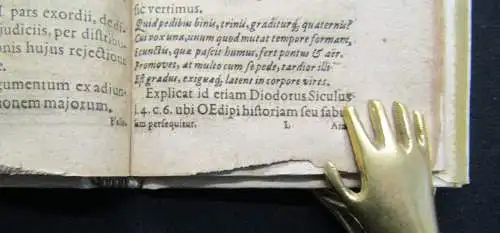 I pars exordii, de di-
judiciis, per distin-
onis hujus rejectione
gumentum ex adiun-
onem majorum.
sic vertimus.
Quid pedibus binis, trinis, graditurq; quaternis?
Cui vox una, unum quod mutat tempore formam,
E cunctis, quæ pascit humus, fert pontus & aër.
Promovet, at multo cum se pede, tardior illi
Est gradus, exiguæq; latent in corpore vires.
Explicat id etiam Diodorus Siculus
l. 4. c. 6. ubi OEdipi historiam seu fabu-
lam persequitur. L